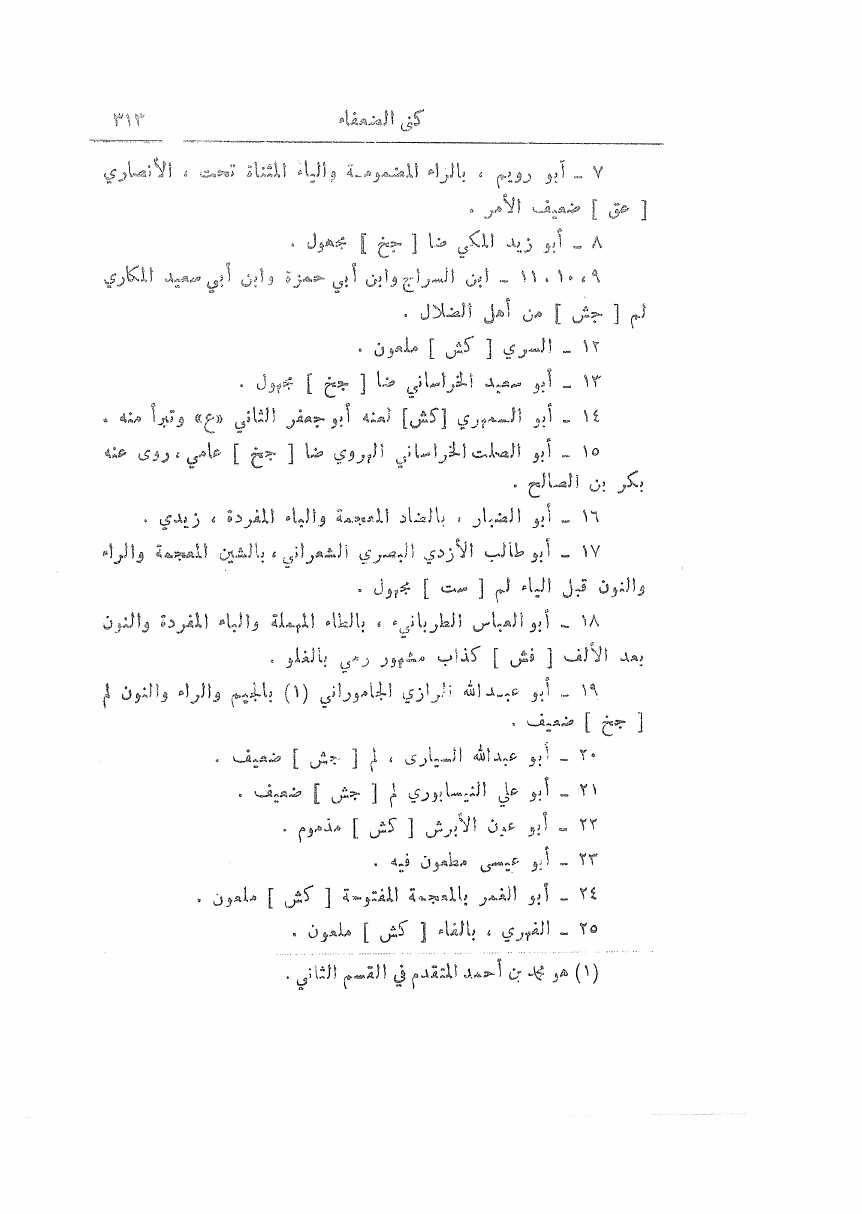 كنى الضعفاء ٣١٣
٧ - أبو رويم ، بالراء المضمومة والياء المثناة تحت ، الأنصاري
[ عق ] ضعيف الأمر .
٨ - أبو زيد المكي ضا [ جخ ] مجهول .
٩ ، ١٠ ، ١١ - ابن السراج وابن أبي حمزة وابن أبي سعيد المكاري
لم [ جش ] من أهل الضلال .
١٢ - السري [ كش ] ملعون .
١٣ - أبو سعيد الخراساني ضا [ جخ ] مجهول .
١٤ - أبو السمهري [كش] لعنه أبو جعفر الثاني «ع» وتبرأ منه .
١٥ - أبو الصلت الخراساني الهروي ضا [ جخ ] عامي ، روى عنه
بكر بن الصالح .
١٦ - أبو الضبار ، بالضاد المعجمة والباء المفردة ، زيدي .
١٧ - أبو طالب الأزدي البصري الشعراني ، بالشين المعجمة والراء
والنون قبل الياء لم [ ست ] مجهول .
١٨ - أبو العباس الطرباني ، بالطاء المهملة والباء المفردة والنون
بعد الألف [ فش ] كذاب مشهور رمي بالغلو .
١٩ - أبو عبدالله الرازي الجاموراني (١) بالجيم والراء والنون لم
[ جخ ] ضعيف .
٢٠ - أبو عبدالله السيارى ، لم [ جش ] ضعيف .
٢١ - أبو علي النيسابوري لم [ جش ] ضعيف .
٢٢ - أبو عون الأبرش [ كش ] مذموم .
٢٣ - أبو عيسى مطعون فيه .
٢٤ - أبو الغمر بالمعجمة المفتوحة [ كش ] ملعون .
٢٥ - الفهري ، بالفاء [ كش ] ملعون .
(١) هو محمد بن أحمد المتقدم في القسم الثاني .